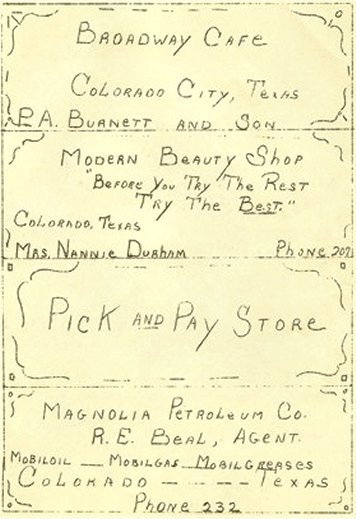 BROADWAY CAFE
COLORADO CITY, TEXAS
P.A. BURNETT AND SON
MODERN BEAUTY SHOP
"BEFORE YOU TRY THE REST
TRY THE BEST."
COLORADO, TEXAS
MRS. NANNIE DURHAM PHONE 207
PICK AND PAY STORE
MAGNOLIA PETROLEUM CO.
R. E. BEAL, AGENT.
MOBILOIL — MOBILGAS MOBILGREASES
COLORADO - - - - - TEXAS
PHONE 232